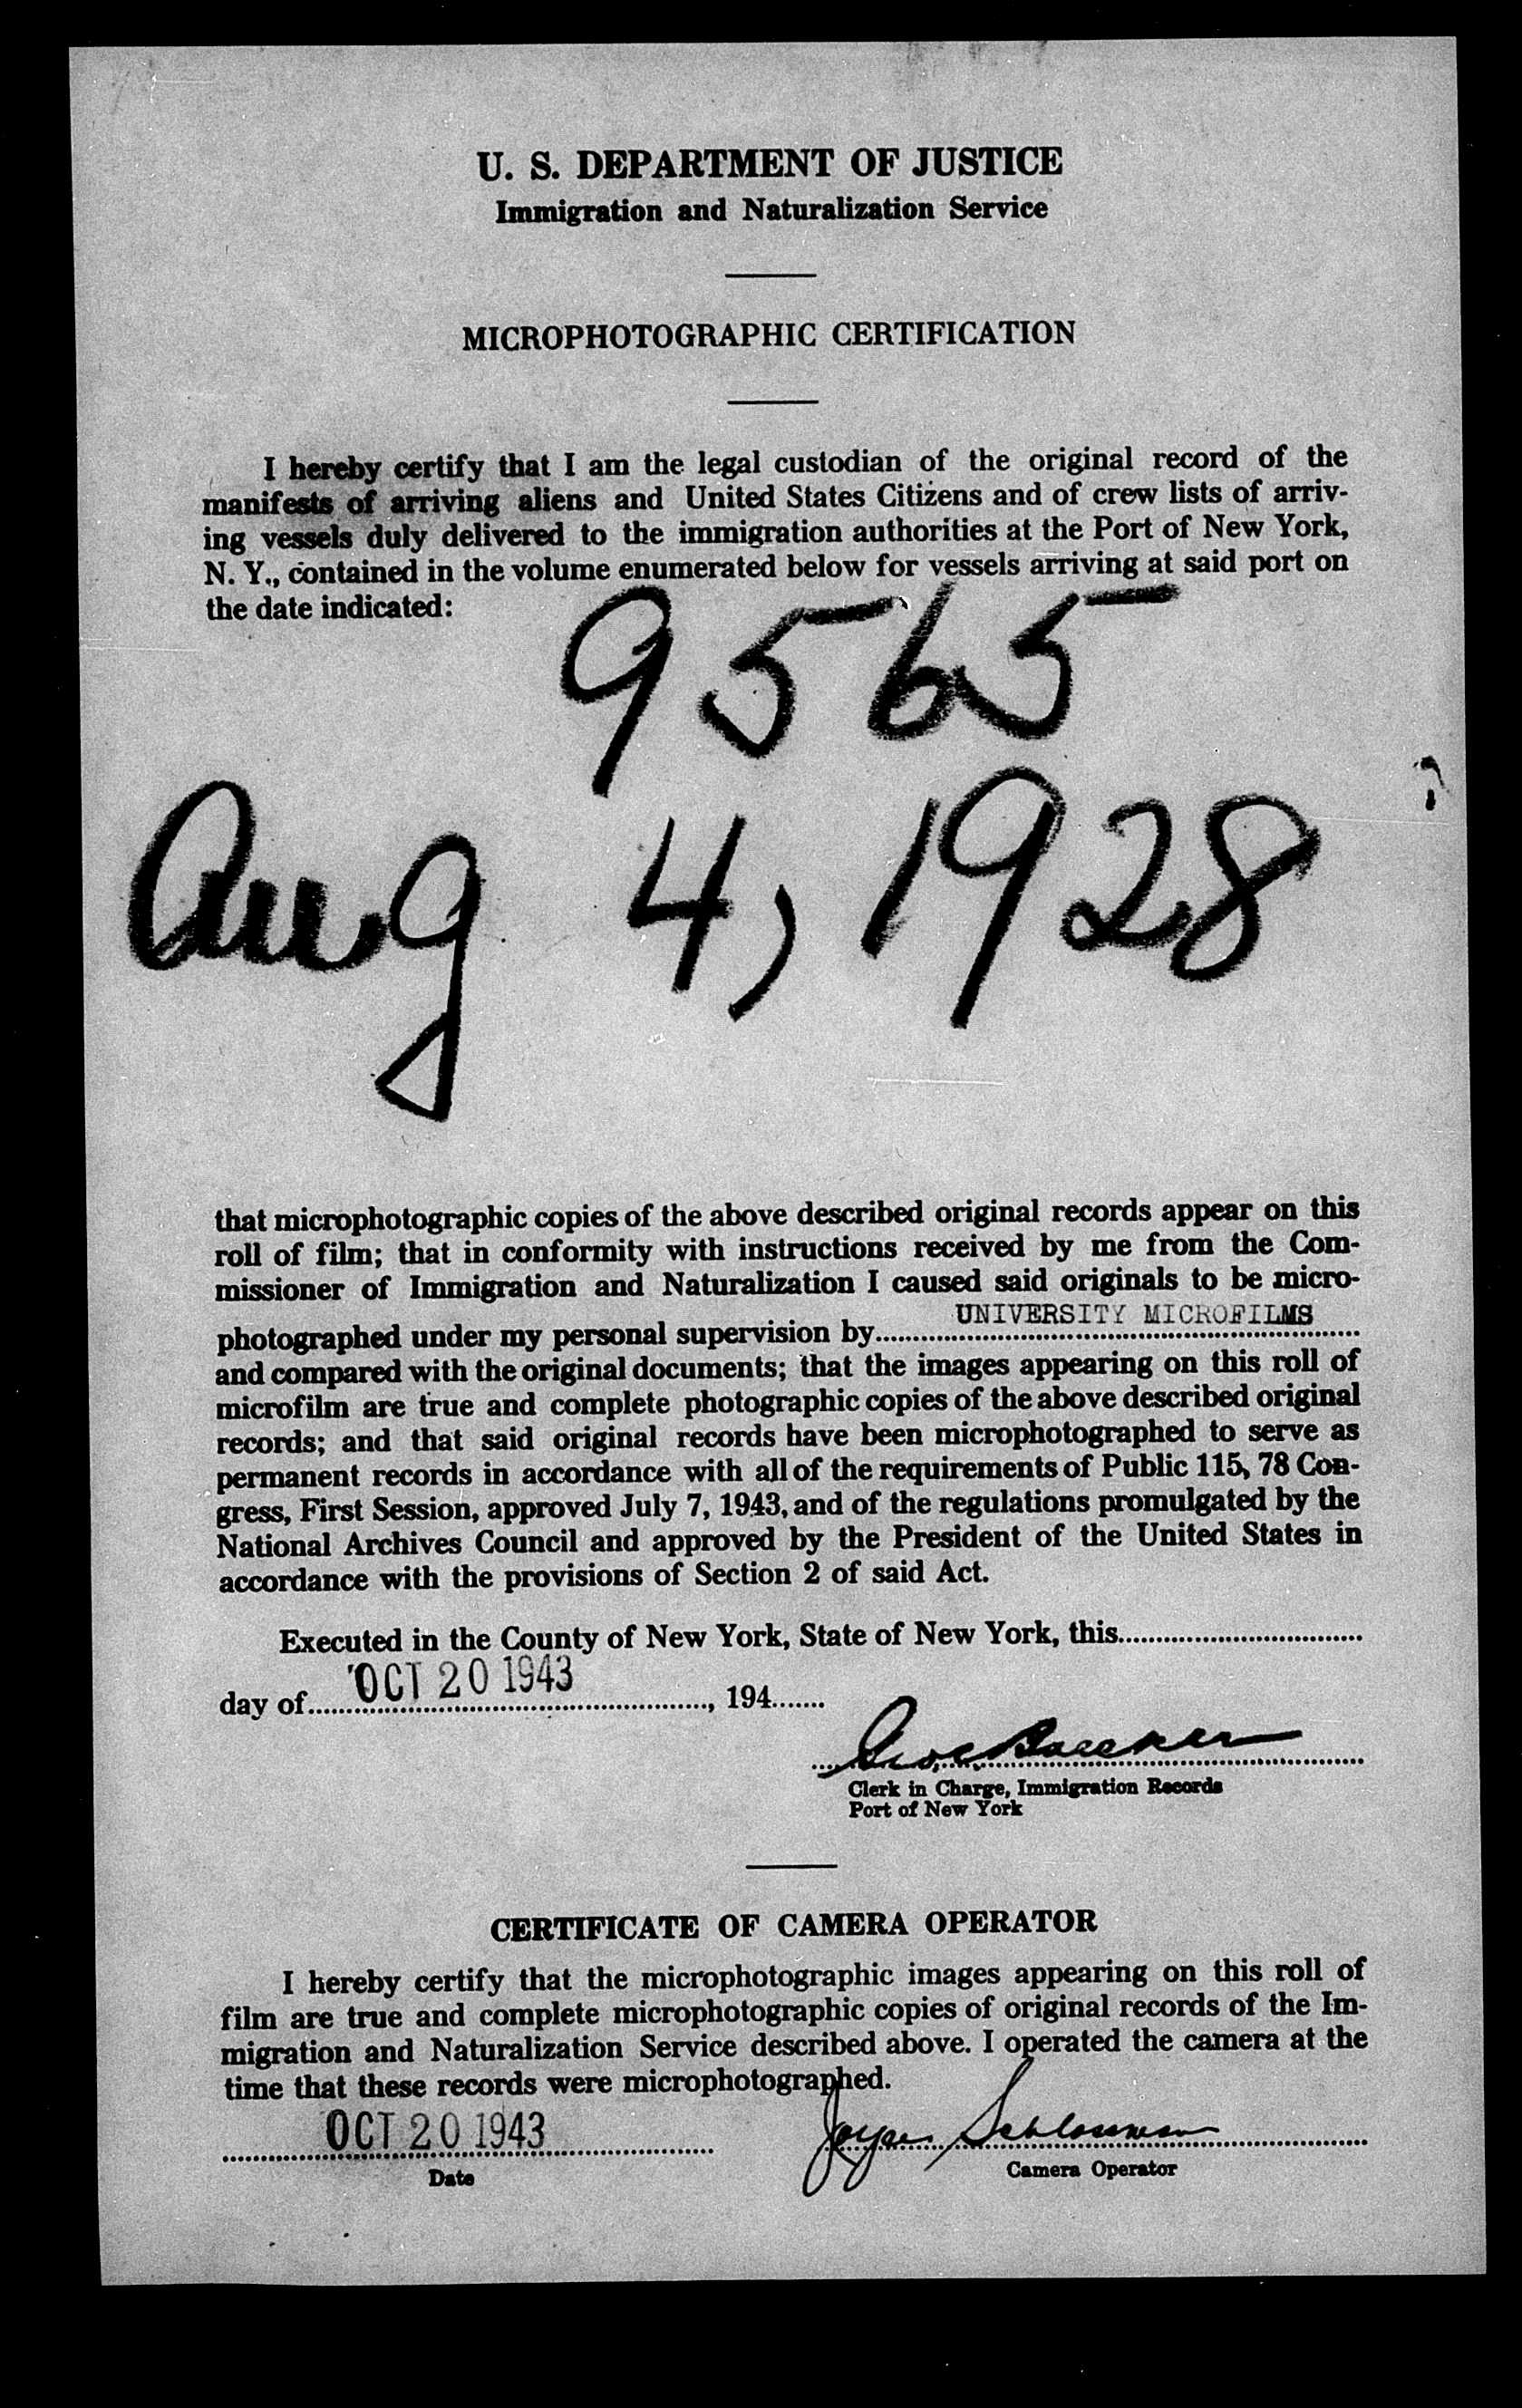 U. S. DEPARTMENT OF JUSTICE
Immigration and Naturalization Service
MICROPHOTOGRAPHIC CERTIFICATION
I hereby certify that I am the legal custodian of the original record of the
manifests of arriving aliens and United States Citizens and of crew lists of arriv-
ing vessels duly delivered to the immigration authorities at the Port of New York,
N. Y., contained in the volume enumerated below for vessels arriving at said port on
the date indicated:
9565
Aug 4, 1928
that microphotographic copies of the above described original records appear on this
roll of film; that in conformity with instructions received by me from the Com-
missioner of Immigration and Naturalization I caused said originals to be micro-
photographed under my personal supervision by UNIVERSITY MICROFILMS
and compared with the original documents; that the images appearing on this roll of
microfilm are true and complete photographic copies of the above described original
records; and that said original records have been microphotographed to serve as
permanent records in accordance with all of the requirements of Public 115, 78 Con-
gress, First Session, approved July 7, 1943, and of the regulations promulgated by the
National Archives Council and approved by the President of the United States in
accordance with the provisions of Section 2 of said Act.
Executed in the County of New York, State of New York, this
day of OCT 20 1943, 194
Clerk in Charge, Immigration Records
Port of New York
CERTIFICATE OF CAMERA OPERATOR
I hereby certify that the microphotographic images appearing on this roll of
film are true and complete microphotographic copies of original records of the Im-
migration and Naturalization Service described above. I operated the camera at the
time that these records were microphotographed.
OCT 20 1943
Date
Camera Operator